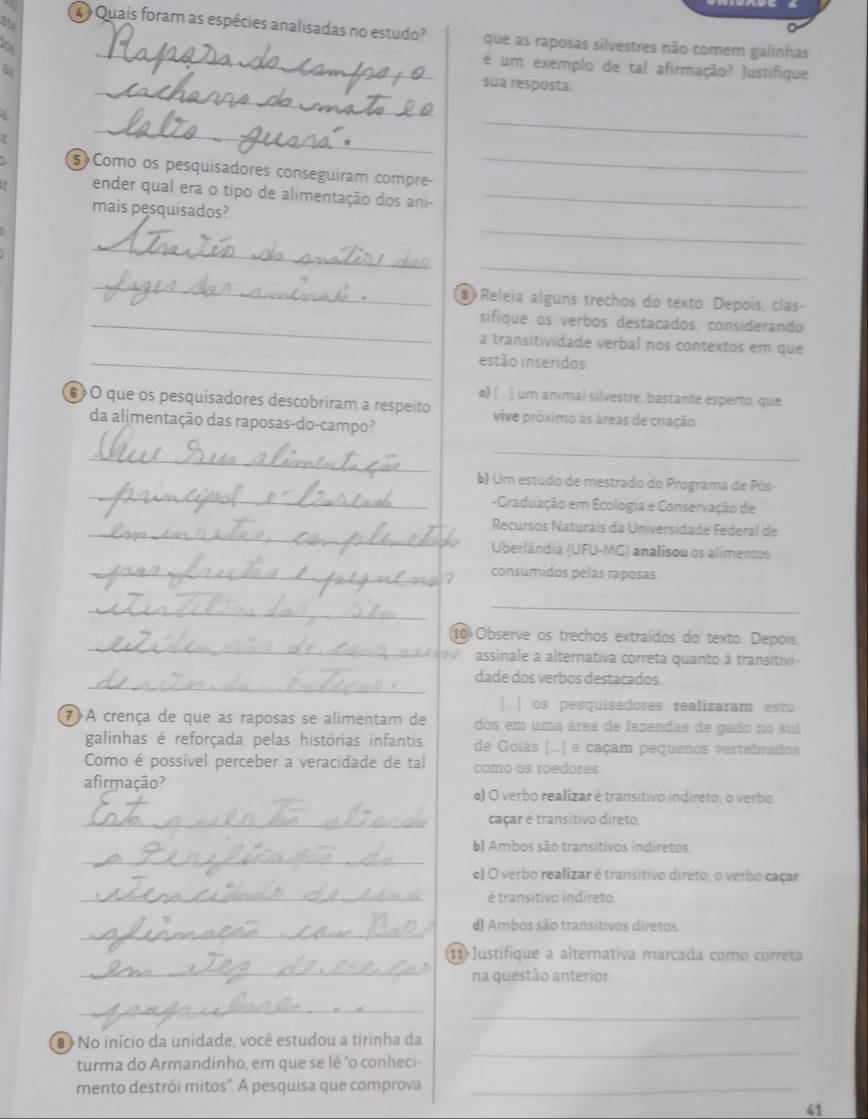 4 Quais foram as espécies analisadas no estudo?
Raposa do campo, o
cachorro do mato e o
lobo guará.
5 Como os pesquisadores conseguiram compre-
ender qual era o tipo de alimentação dos ani-
mais pesquisados?
Através da análise das
fezes dos animais.
6 O que os pesquisadores descobriram a respeito
da alimentação das raposas-do-campo?
Que sua alimentação
principal é baseada
em insetos, completado
por frutas e pequenos
sem
de consumo
7 A crença de que as raposas se alimentam de
galinhas é reforçada pelas histórias infantis.
Como é possível perceber a veracidade de tal
afirmação?
Esta questão aborda
a verificação da
veracidade de uma
afirmação com base
em vez de crenças
populares.
8 No início da unidade, você estudou a tirinha da
turma do Armandinho, em que se lê "o conheci-
mento destrói mitos". A pesquisa que comprova
que as raposas silvestres não comem galinhas
é um exemplo de tal afirmação? Justifique
sua resposta.
9 Releia alguns trechos do texto. Depois, clas-
sifique os verbos destacados, considerando
a transitividade verbal nos contextos em que
estão inseridos.
a) [...] um animal silvestre, bastante esperto, que
vive próximo às áreas de criação.
b) Um estudo de mestrado do Programa de Pós-
-Graduação em Ecologia e Conservação de
Recursos Naturais da Universidade Federal de
Uberlândia (UFU-MG) analisou os alimentos
consumidos pelas raposas.
10 Observe os trechos extraídos do texto. Depois,
assinale a alternativa correta quanto à transitivi-
dade dos verbos destacados.
[...] os pesquisadores realizaram estu-
dos em uma área de fazendas de gado no sul
de Goiás [...] e caçam pequenos vertebrados
como os roedores.
a) O verbo realizar é transitivo indireto; o verbo
caçar é transitivo direto.
b) Ambos são transitivos indiretos.
c) O verbo realizar é transitivo direto; o verbo caçar
é transitivo indireto.
d) Ambos são transitivos diretos.
11 Justifique a alternativa marcada como correta
na questão anterior.
41